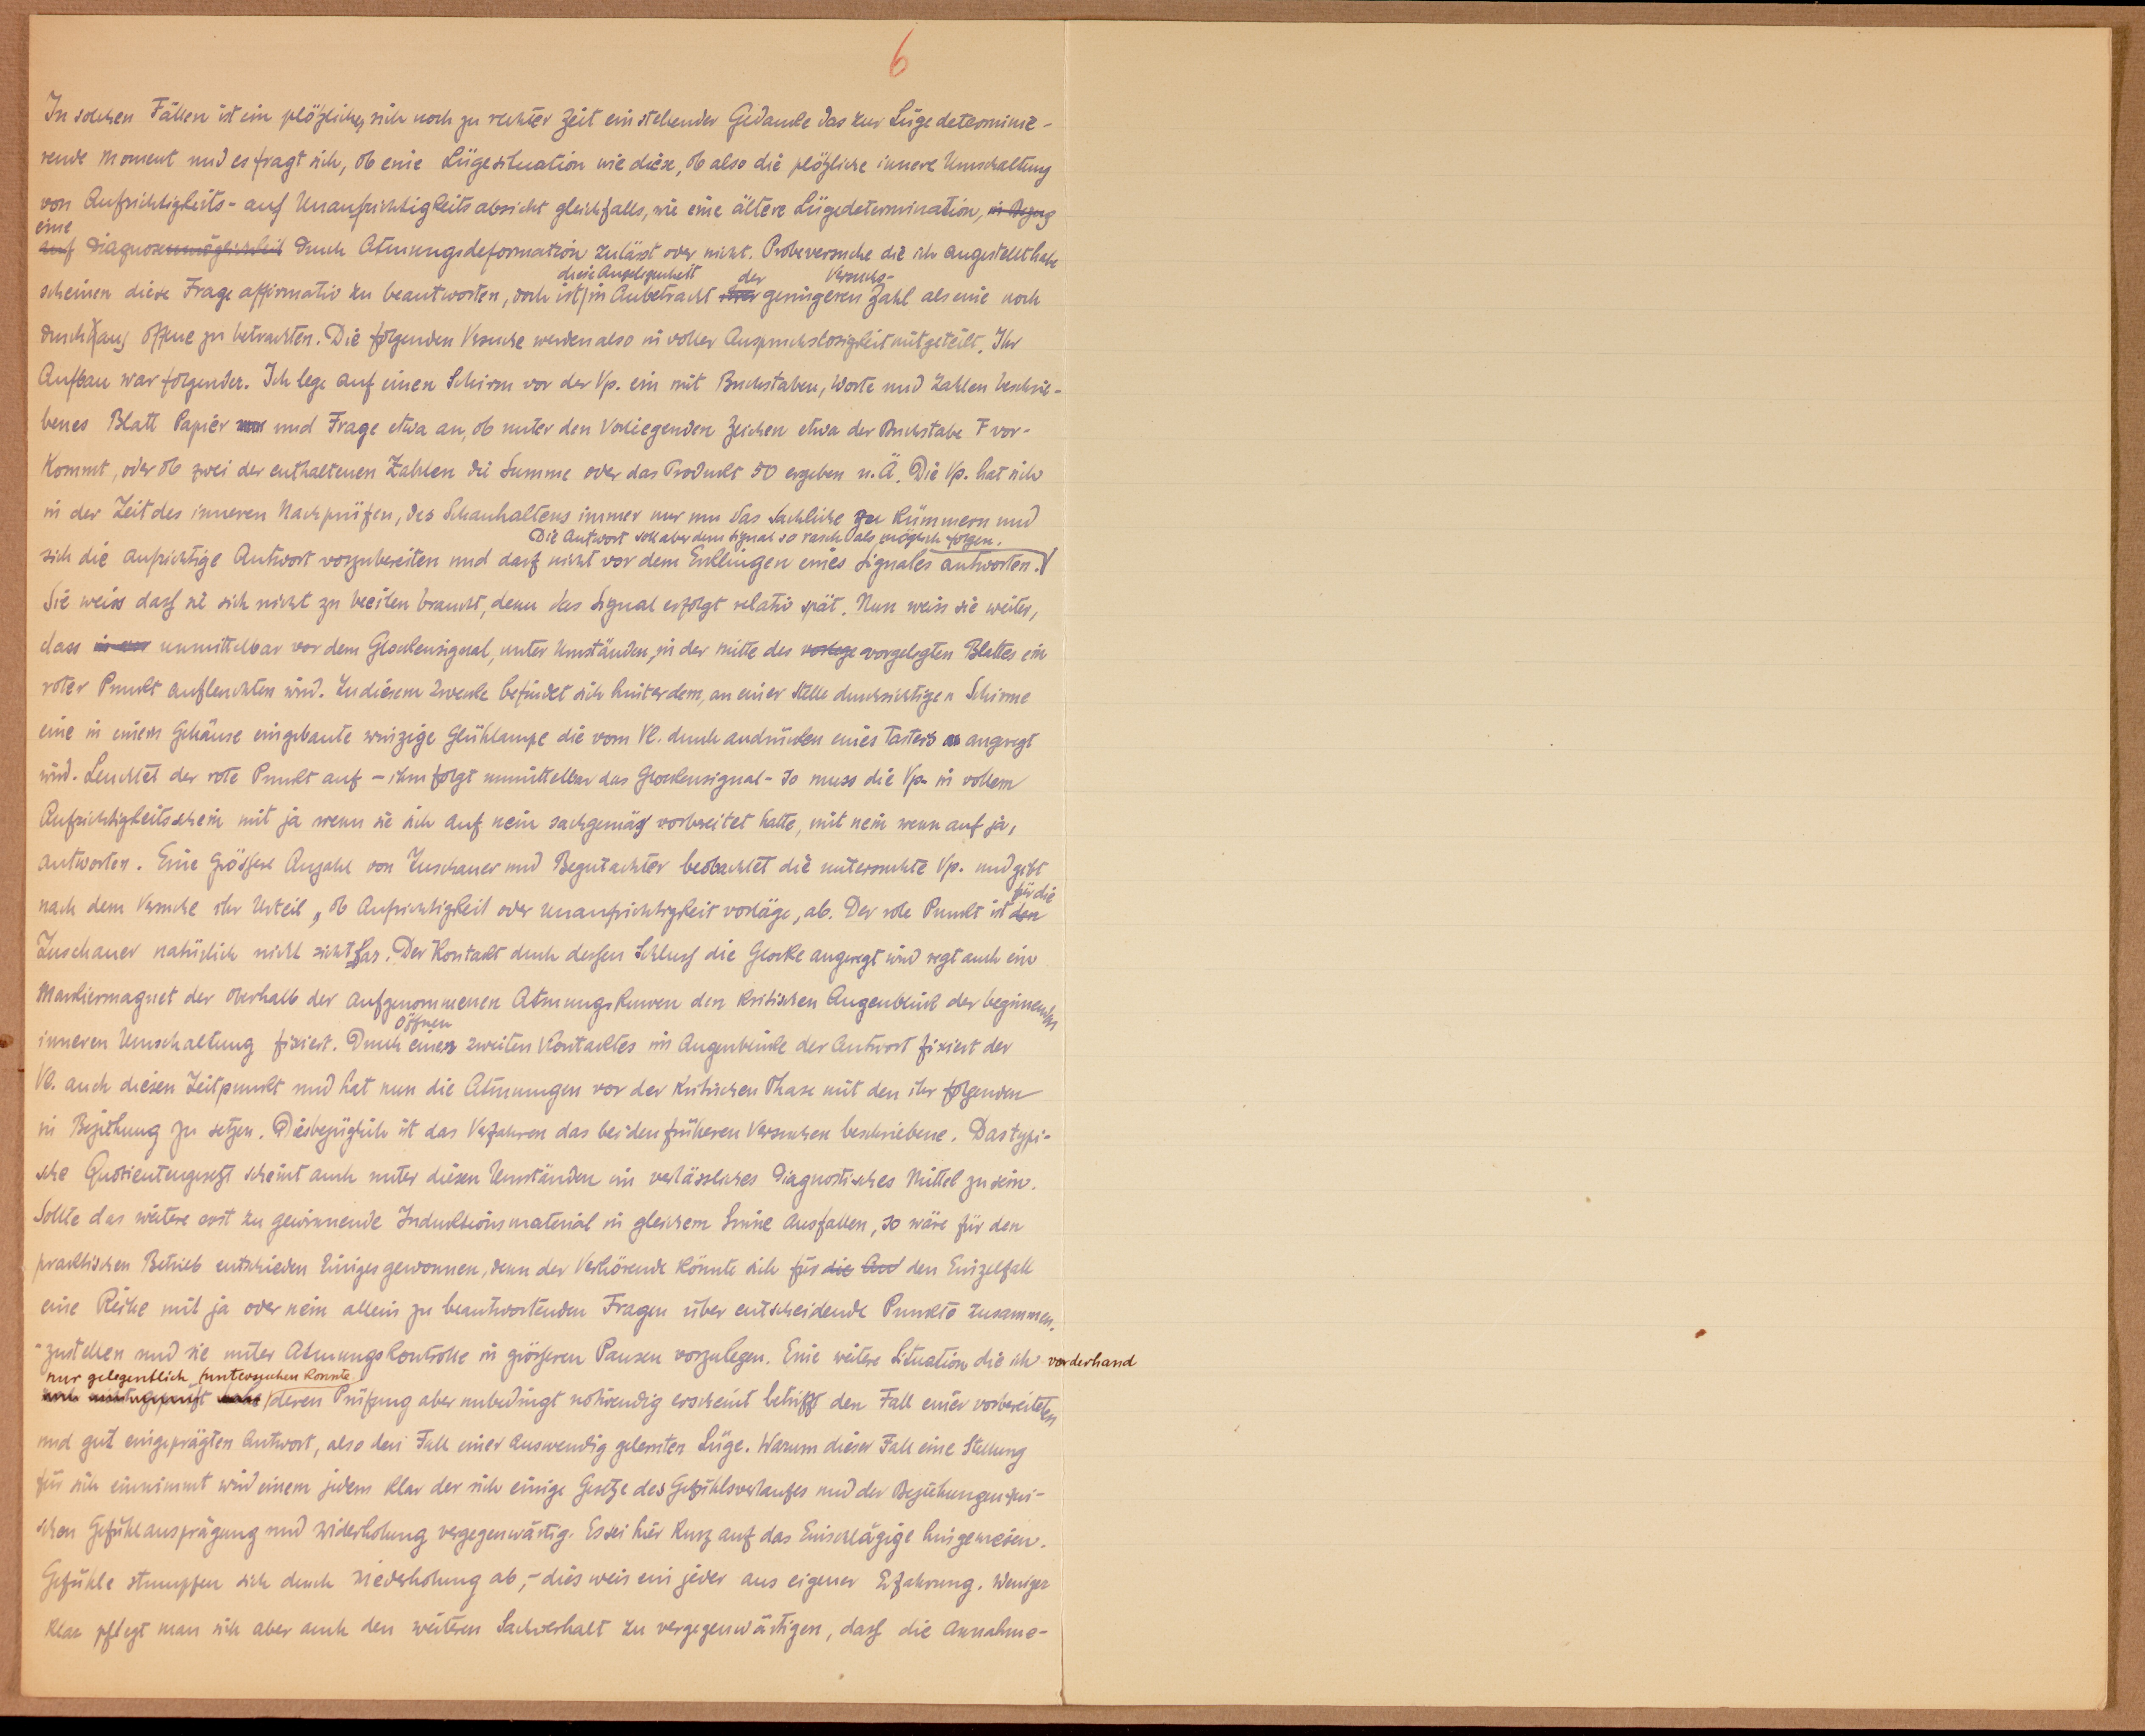 6
In solchen Fällen ist ein plözlicher sich noch zu rechter Zeit einstehender Gedanke das zur Lüge determinie-
rende Moment und es fragt sich, ob eine Lügesituation wie diese, ob also die plözliche innere Umschaltung
von Aufrichtigkeits- auf Unaufrichtigkeitsabsicht gleichfalls, wie eine ältere Lügedetermination, in Bezug
eine
auf Diagnosenmöglichkeit durch Atmungsdeformation zulässt oder nicht. Probeversuche die ich angestellt habe
diese Angelegenheit der Versuchs-
scheinen diese Frage affirmativ zu beantworten, doch ist in Anbetracht geringeren Zahl als eine noch
durchaus offene zu betrachten. Die folgenden Versuche werden also in voller Anspruchslosigkeit mitgeteilt. Ihr
Aufbau war folgender. Ich lege auf einen Schirm vor der Vp. ein mit Buchstaben, Worte und Zahlen beschrie-
benes Blatt Papier und Frage etwa an, ob unter den Vorliegenden Zeichen etwa der Buchstabe F vor-
kommt, oder ob zwei der enthaltenen Zahlen die Summe oder das Produkt 50 ergeben u. Ä. Die Vp. hat sich
in der Zeit des inneren Nachprüfen, des Schauhaltens immer nur um das Sachliche zu kümmern und
Die Antwort soll aber dem Signal so rasch als möglich folgen.
sich die aufrichtige Antwort vorzubereiten und darf nicht vor dem Erklingen eines Signales antworten.
Sie weiss dass sie sich nicht zu beeilen braucht, denn das Signal erfolgt relativ spät. Nun weiss sie weiter,
dass in der unmittelbar vor dem Glockensignal, unter Umständen, in der mitte des vorlege vorgelegten Blattes ein
roter Punkt aufleuchten wird. Zu diesem Zwecke befindet sich hinter dem, an einer Stelle durchsichtigen Schirme
eine in einem Gehäuse eingebaute winzige Glühlampe die vom Vl. durch andrücken eines Tasters angeregt
wird. Leuchtet der rote Punkt auf – ihm folgt unmittelbar das Glockensignal – so muss die Vp. in vollem
Aufrichtigkeitsschein mit ja wenn sie sich auf nein sachgemäss vorbereitet hatte, mit nein wenn auf ja,
antworten. Eine grössere Anzahl von Zuschauer und Begutachter beobachtet die untersuchte Vp. und gibt
für die
nach dem Versuche ihr Urteil, ob Aufrichtigkeit oder Unaufrichtigkeit vorläge, ab. Der rote Punkt ist den
Zuschauer natürlich nicht sichtbar. Der Kontakt durch dessen Schluss die Glocke angeregt wird regt auch ein
Markiermagnet der oberhalb der aufgenommenen Atmungskurven den kritischen Augenblick der beginnenden
Öffnen
inneren Umschaltung fixiert. Durch eines zweiten Kontacktes im Augenblicke der Antwort fixiert der
Vl. auch diesen Zeitpunkt und hat nun die Atmungen vor der kritischen Phase mit den ihr folgenden
in Beziehung zu setzen. Diesbezüglich ist das Verfahren das bei den früheren Versuchen beschriebene. Das typi-
sche Quotientengesetz scheint auch unter diesen Umständen ein verlässliches Diagnostisches Mittel zu sein.
Sollte das weitere erst zu gewinnende Induktionsmaterial in gleichem Sinne ausfallen, so wäre für den
practischen Betrieb entschieden Einiges gewonnen, denn der Verhörende könnte sich für die den Einzelfall
eine Reihe mit ja oder nein allein zu beantwortenden Fragen über entscheidende Punkte zusammen-
zustellen und sie unter Atmungskontrolle in grösseren Pausen vorzulegen. Eine weitere Situation die ich vorderhand
nur gelegentlich untersuchen konnte
noch nicht geprüft habe deren Prüfung aber unbedingt notwendig erscheint betrifft den Fall einer vorbereiteten
und gut eingeprägten Antwort, also den Fall einer Auswendig gelernten Lüge. Warum dieser Fall eine Stellung
für sich einnimmt wird einem jedem klar der sich einige Gesetze des Gefühlsverlaufes und der Beziehungen zwi-
schen Gefühlausprägung und Widerholung vergegenwärtig. Es sei hier kurz auf das Einschlägige hingewiesen.
Gefühle stumpfen sich durch Wiederholung ab, – dies weis ein jeder aus eigener Erfahrung. Weniger
klar pflegt man sich aber auch den weiteren Sachverhalt zu vergegenwärtigen, dass die Annahme-